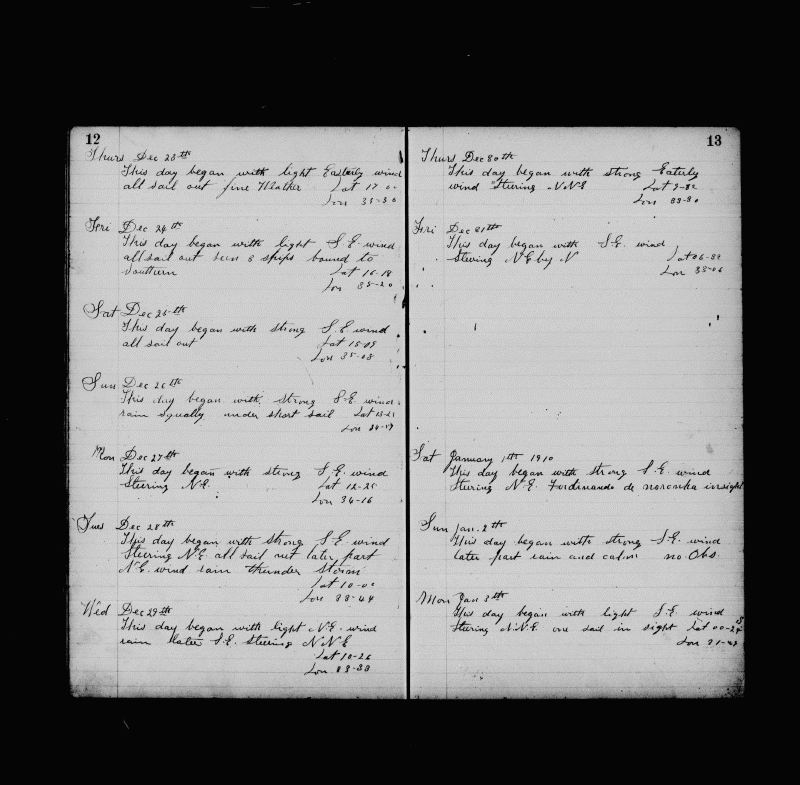 12
Thurs Dec 23th
This day began with light Easterly wind
all sail out fine Weather Lat 17 00
Lon 35-30
Fri Dec 24th
This day began with light S.E. wind
all sail out seen 2 ships bound to
Southern Lat 16-18
Lon 35-20
Sat Dec 25th
This day began with strong S.E wind
all sail out Lat 15-09
Lon 35-03
Sun Dec 26th
This day began with strong S.E. wind
rain squally under short sail Lat 13-21
Lon 34-19
Mon Dec 27th
This day began with strong S.E. wind
Steering N.E. Lat 12-25
Lon 34-16
Tues Dec 28th
This day began with strong S.E. wind
Steering N.E. all sail out later part
N.E. wind rain thunder storm
Lat 10-00
Lon 33-44
Wed Dec 29th
This day began with light N.E. wind
rain later S.E. Steering N.N.E
Lat 10-26
Lon 33-33
13
Thurs Dec 30th
This day began with strong Eaterly
wind Steering N.N.E Lat 9-32
Lon 33-30
Fri Dec 31th
This day began with S.E. wind
Steering N.E by N Lat 06-32
Lon 33-06
Sat January 1th 1910
This day began with strong S.E. wind
Steering N.E. Ferdinando de noronha in sight
Sun Jan. 2th
This day began with strong S.E. wind
later part rain and calm no Obs.
Mon Jan 3th
This day began with light S.E. wind
Steering N.N.E. one sail in sight Lat 00-24 S
Lon 31-42